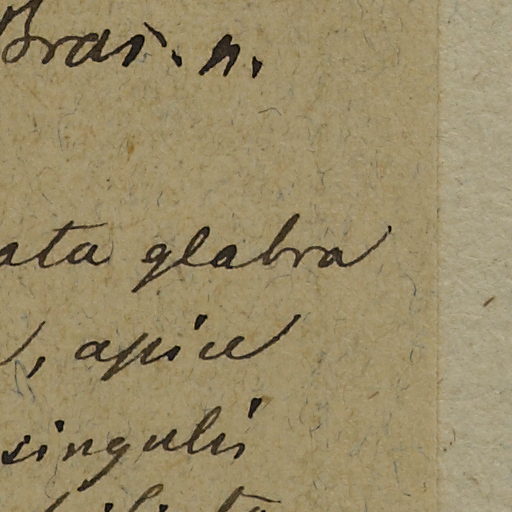 Bras. n.
ata glabra
, apice
singulis